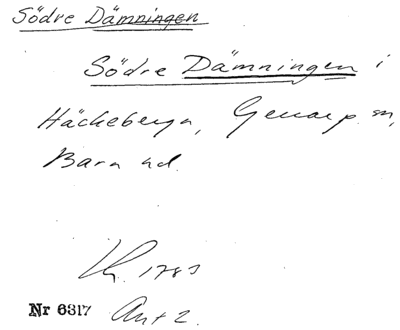 Södre Dämningen
Södre Dämningen i
Häckeberga, Genarp sn,
Bara hd.
1783
Nr 6317 Ant 2.